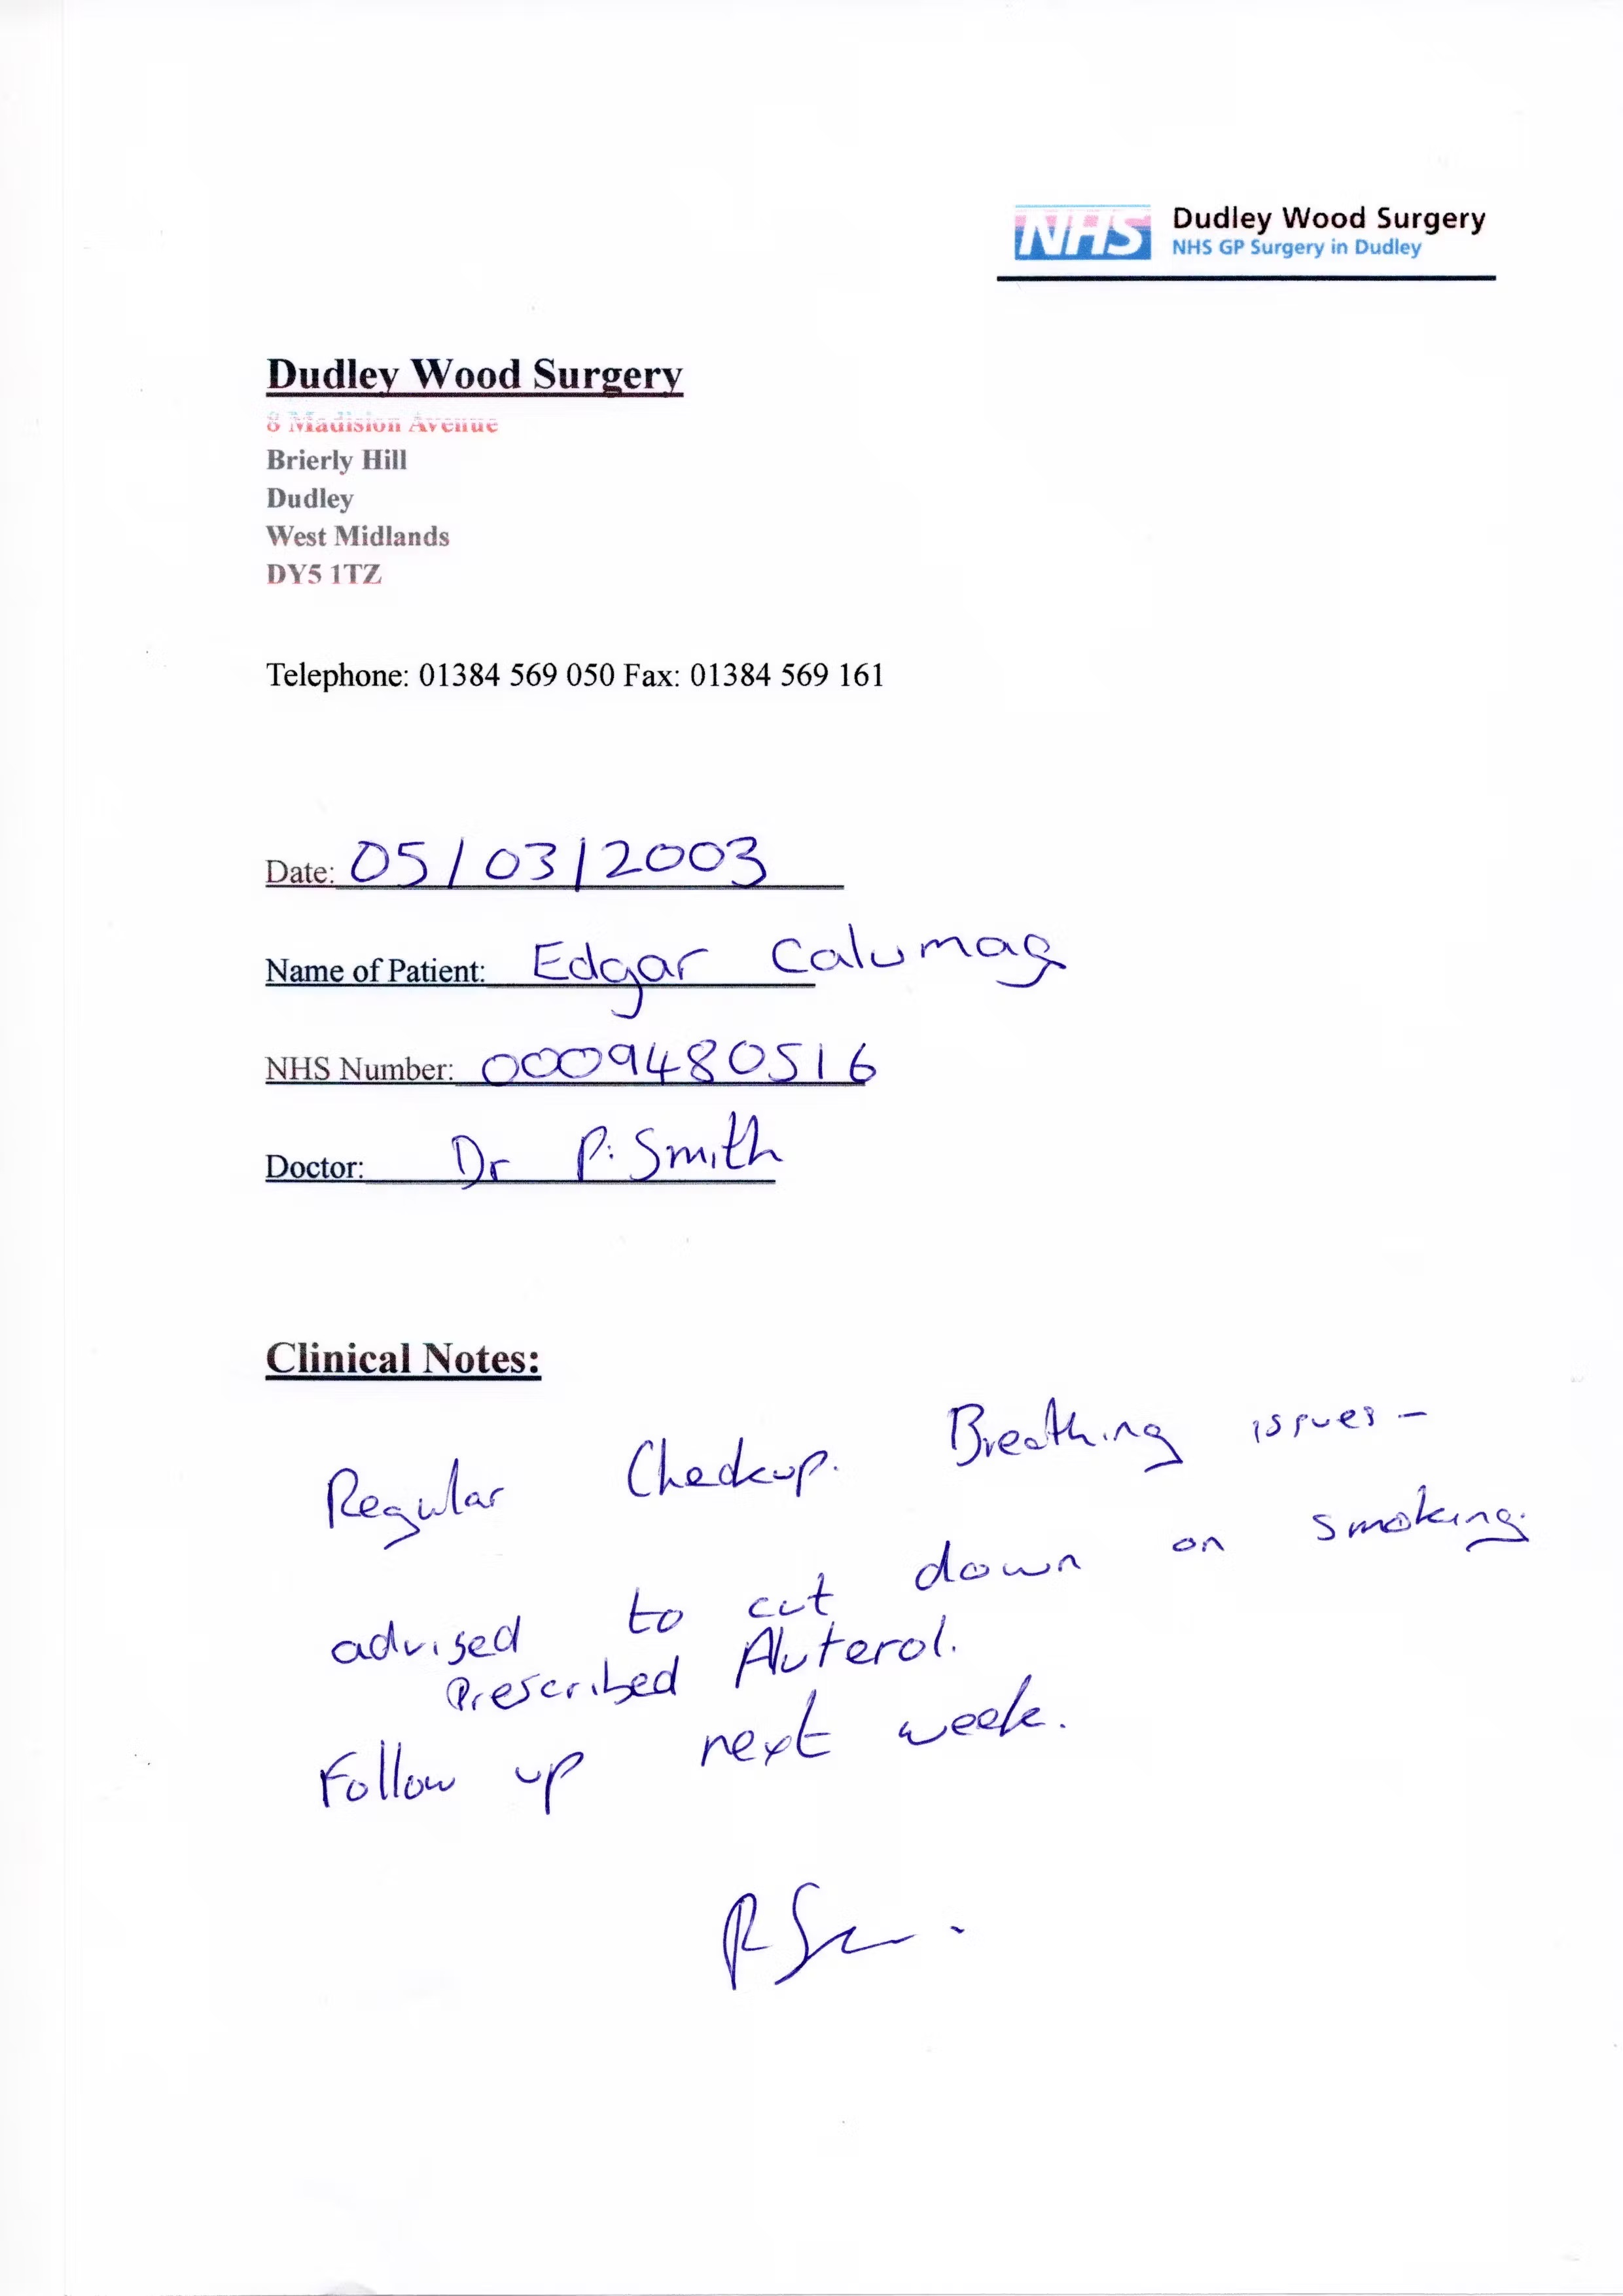 NHS Dudley Wood Surgery
NHS GP Surgery in Dudley
Dudley Wood Surgery
8 Madision Avenue
Brierly Hill
Dudley
West Midlands
DY5 1TZ
Telephone: 01384 569 050 Fax: 01384 569 161
Date: 05/03/2003
Name of Patient: Edgar Calumag
NHS Number: 0009480516
Doctor: Dr P. Smith
Clinical Notes:
Regular Checkup. Breathing issues -
advised to cut down on smoking.
Prescribed Aluterol.
Follow up next week.